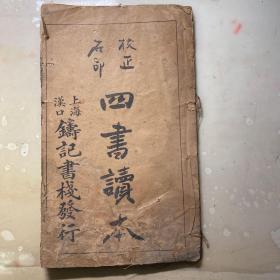 校正
石印
四書讀本
上海
漢口
鑄記書棧發行